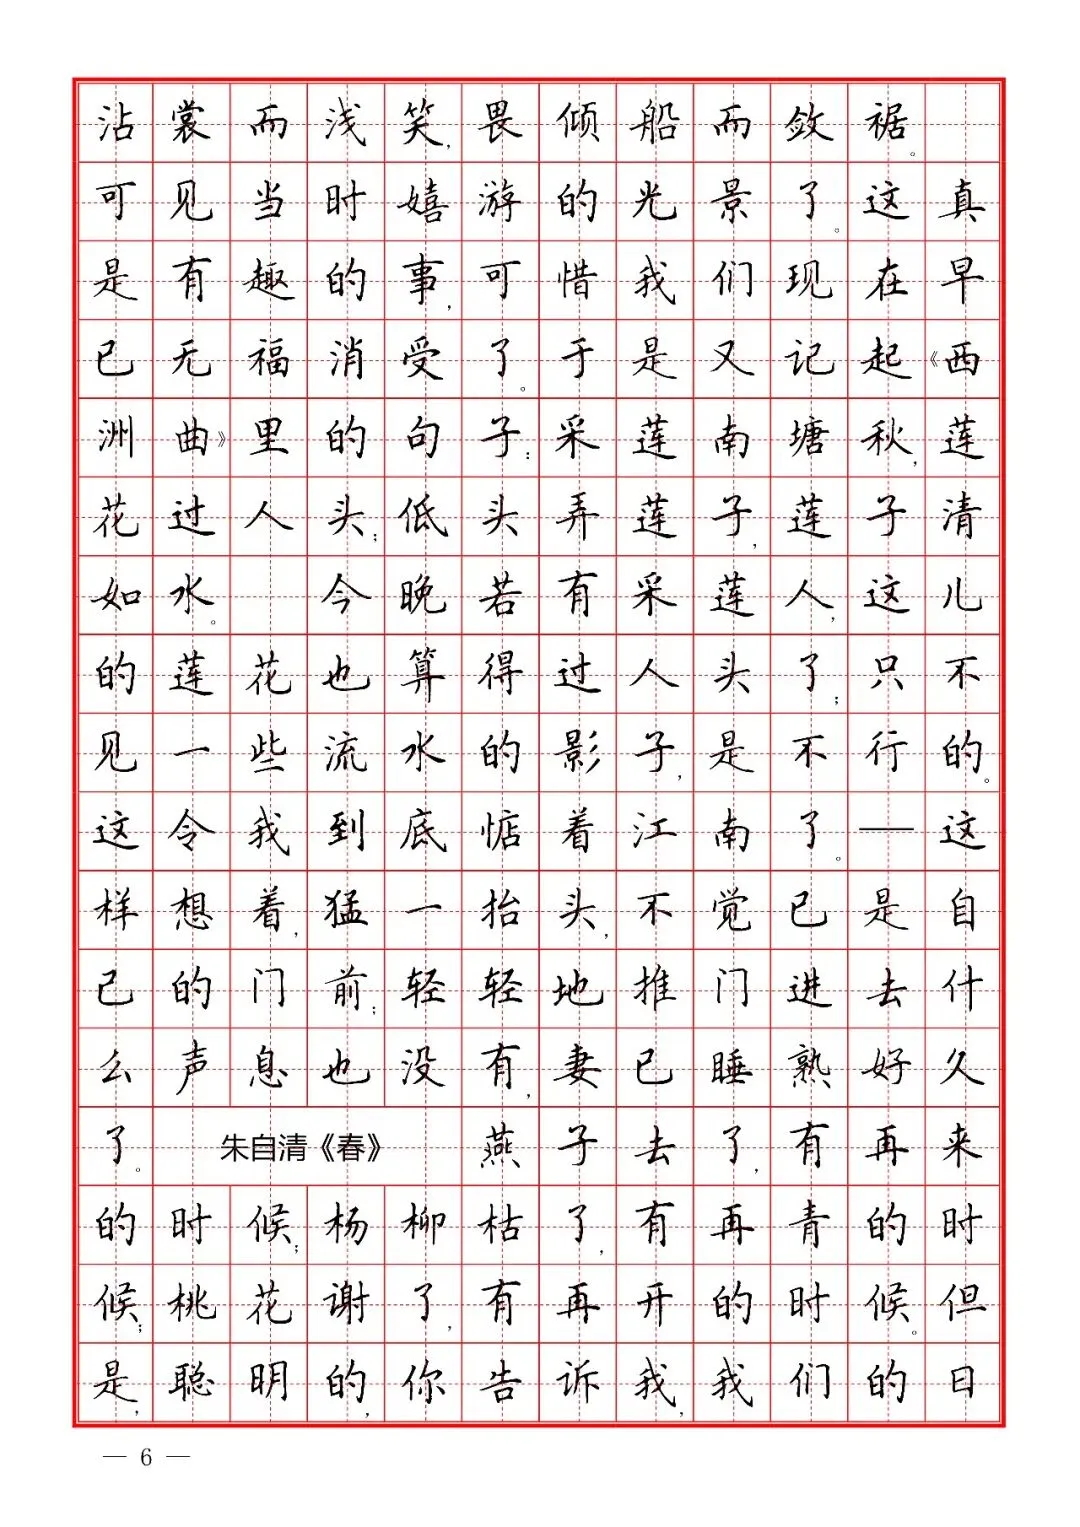 沾裳而浅笑,畏倾船而敛裾。
可见当时嬉游的光景了。这真
是有趣的事,可惜我们现在早
已无福消受了。于是又记起《西
洲曲》里的句子:采莲南塘秋,莲
花过人头;低头弄莲子,莲子清
如水。 今晚若有采莲人,这儿
的莲花也算得过人头了;只不
见一些流水的影子,是不行的。
这令我到底惦着江南了。——这
样想着,猛一抬头,不觉已是自
己的门前;轻轻地推门进去什
么声息也没有,妻已睡熟好久
了。 朱自清《春》 燕子去了,有再来
的时候;杨柳枯了,有再青的时
候;桃花谢了,有再开的时候。但
是,聪明的,你告诉我,我们的日
— 6 —